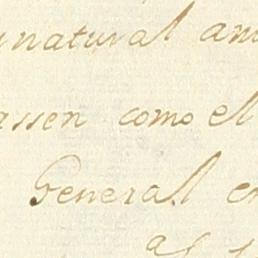 natural am
assen como el
General e